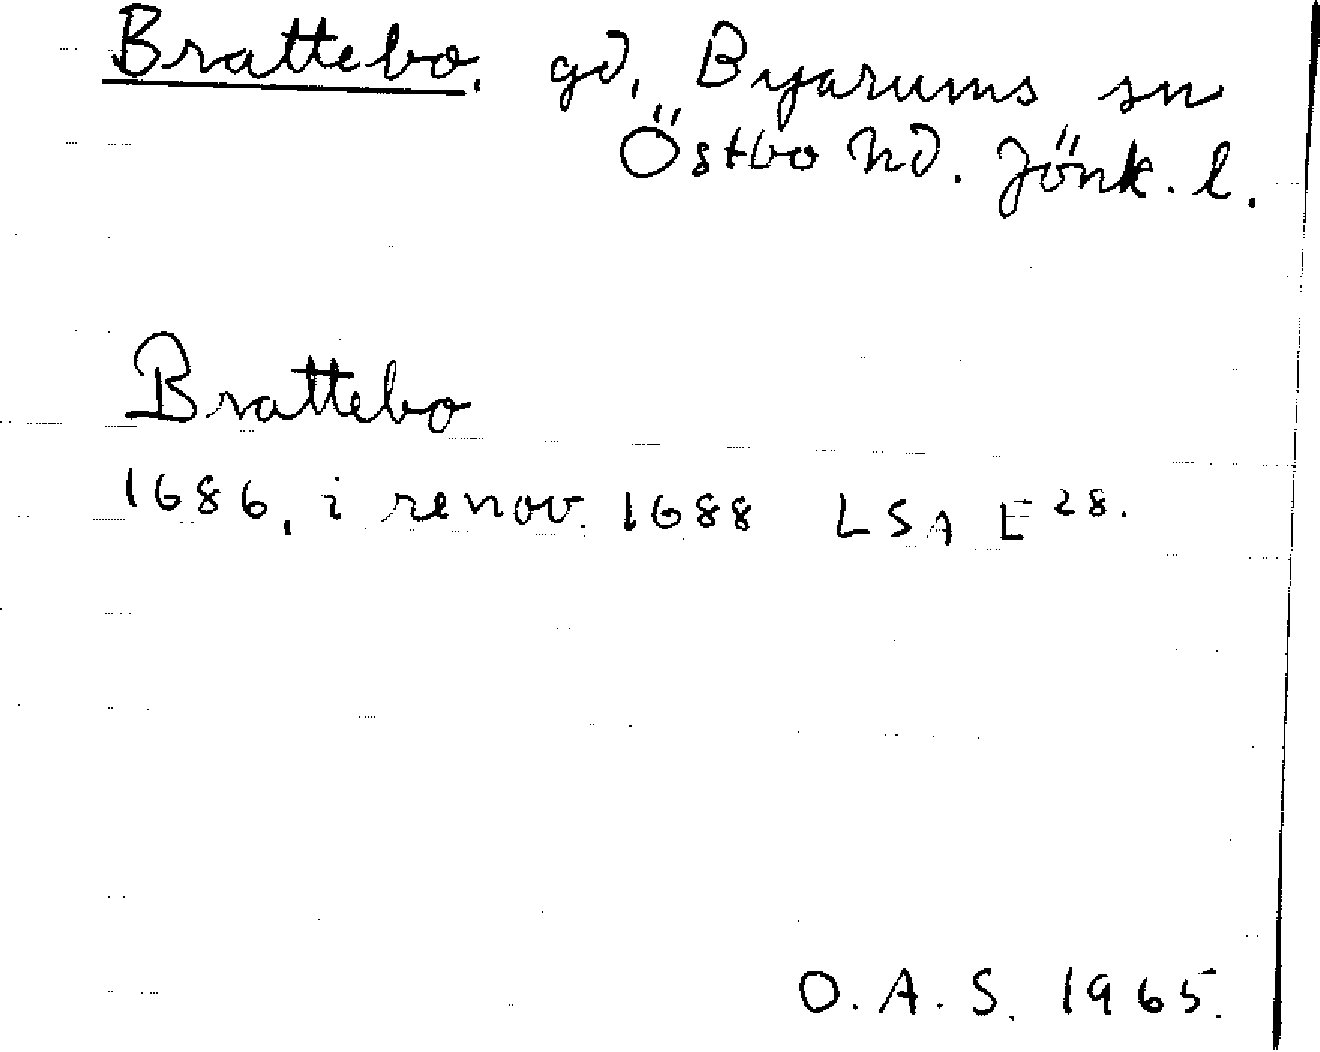 Brattebo. gd, Byarums sn
Östbo hd. Jönk. l.
Brattebo
1686, i renov. 1688 LSA E 28.
O. A. S. 1965.